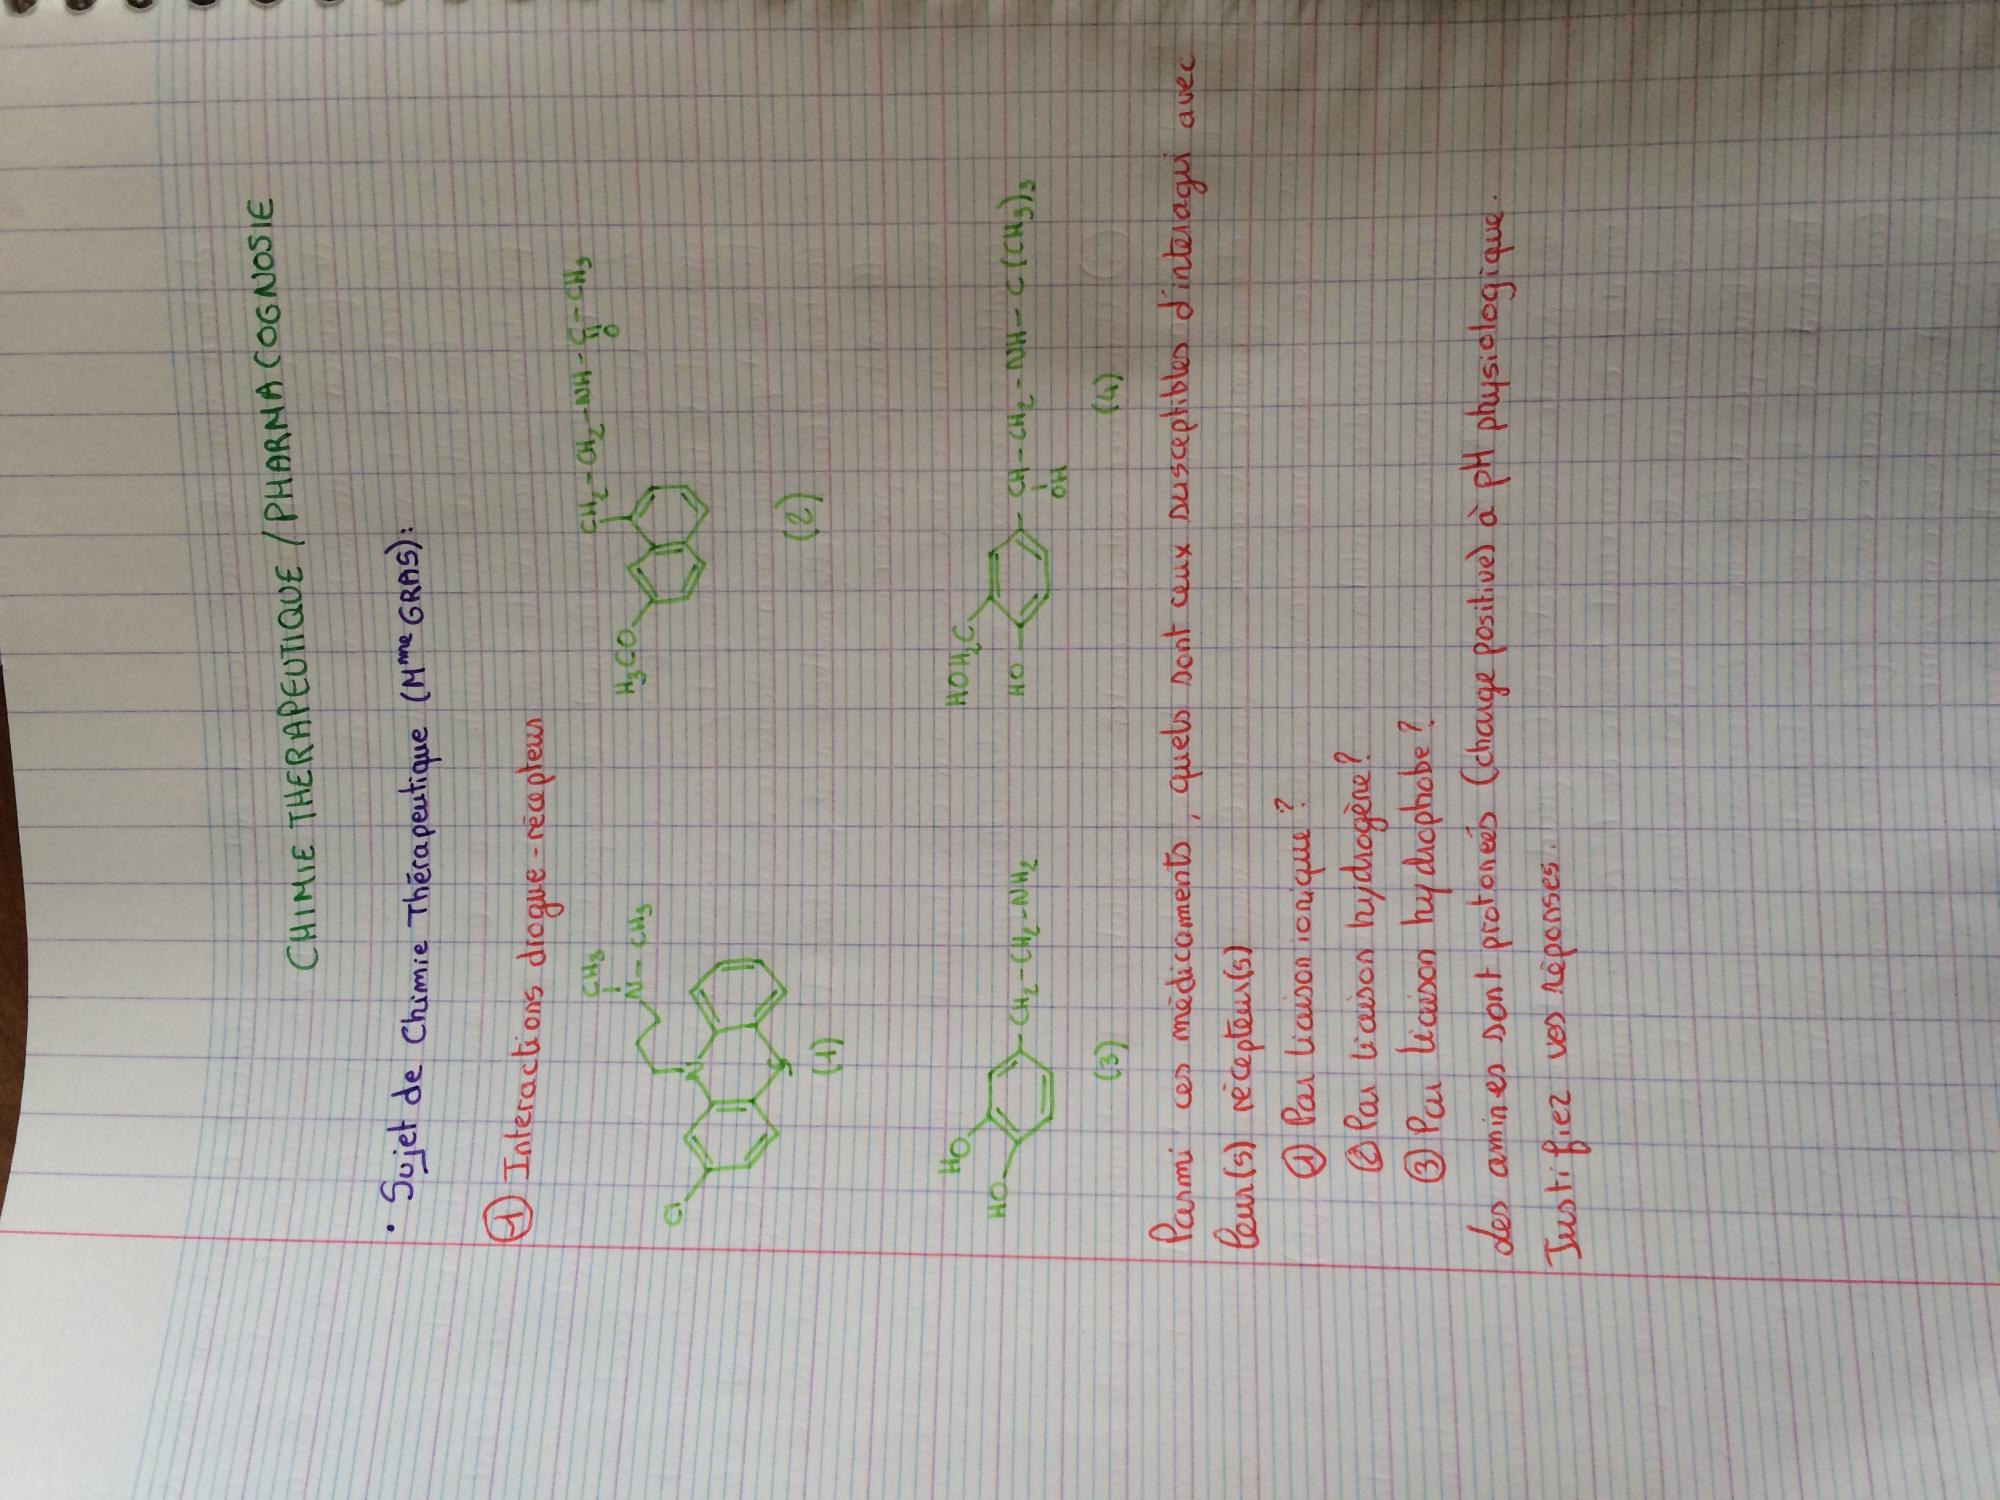 CHIMIE THERAPEUTIQUE / PHARMACOGNOSIE
• Sujet de Chimie Thérapeutique (Mme GRAS):
① Interactions drogue-récepteur
CH3
N-CH3
Cl
N
S
(1)
CH2-CH2-NH-C-CH3
O
H3CO
(2)
HO
HO
CH2-CH2-NH2
(3)
HOH2C
HO
CH-CH2-NH-C(CH3)3
OH
(4)
Parmi ces médicaments, quels sont ceux susceptibles d'interagi avec
leur(s) récepteur(s)
① Par liaison ionique?
② Par liaison hydrogène?
③ Par liaison hydrophobe?
Les amines sont protonées (charge positive) à pH physiologique.
Justifiez vos réponses.